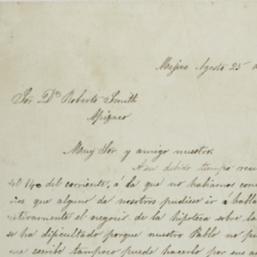 Mejico Agosto 25
Sor Dn Roberto Smith
Muy Sor y amigo nuestro,
A su debido tiempo
del 14 del corriente, á la que no habiamos
que alguno de nosotros pudiese ir á
el negocio de la hipoteca sobre
se ha dificultado porque nuestro Pablo no
escribe tampoco puede hacerlo por